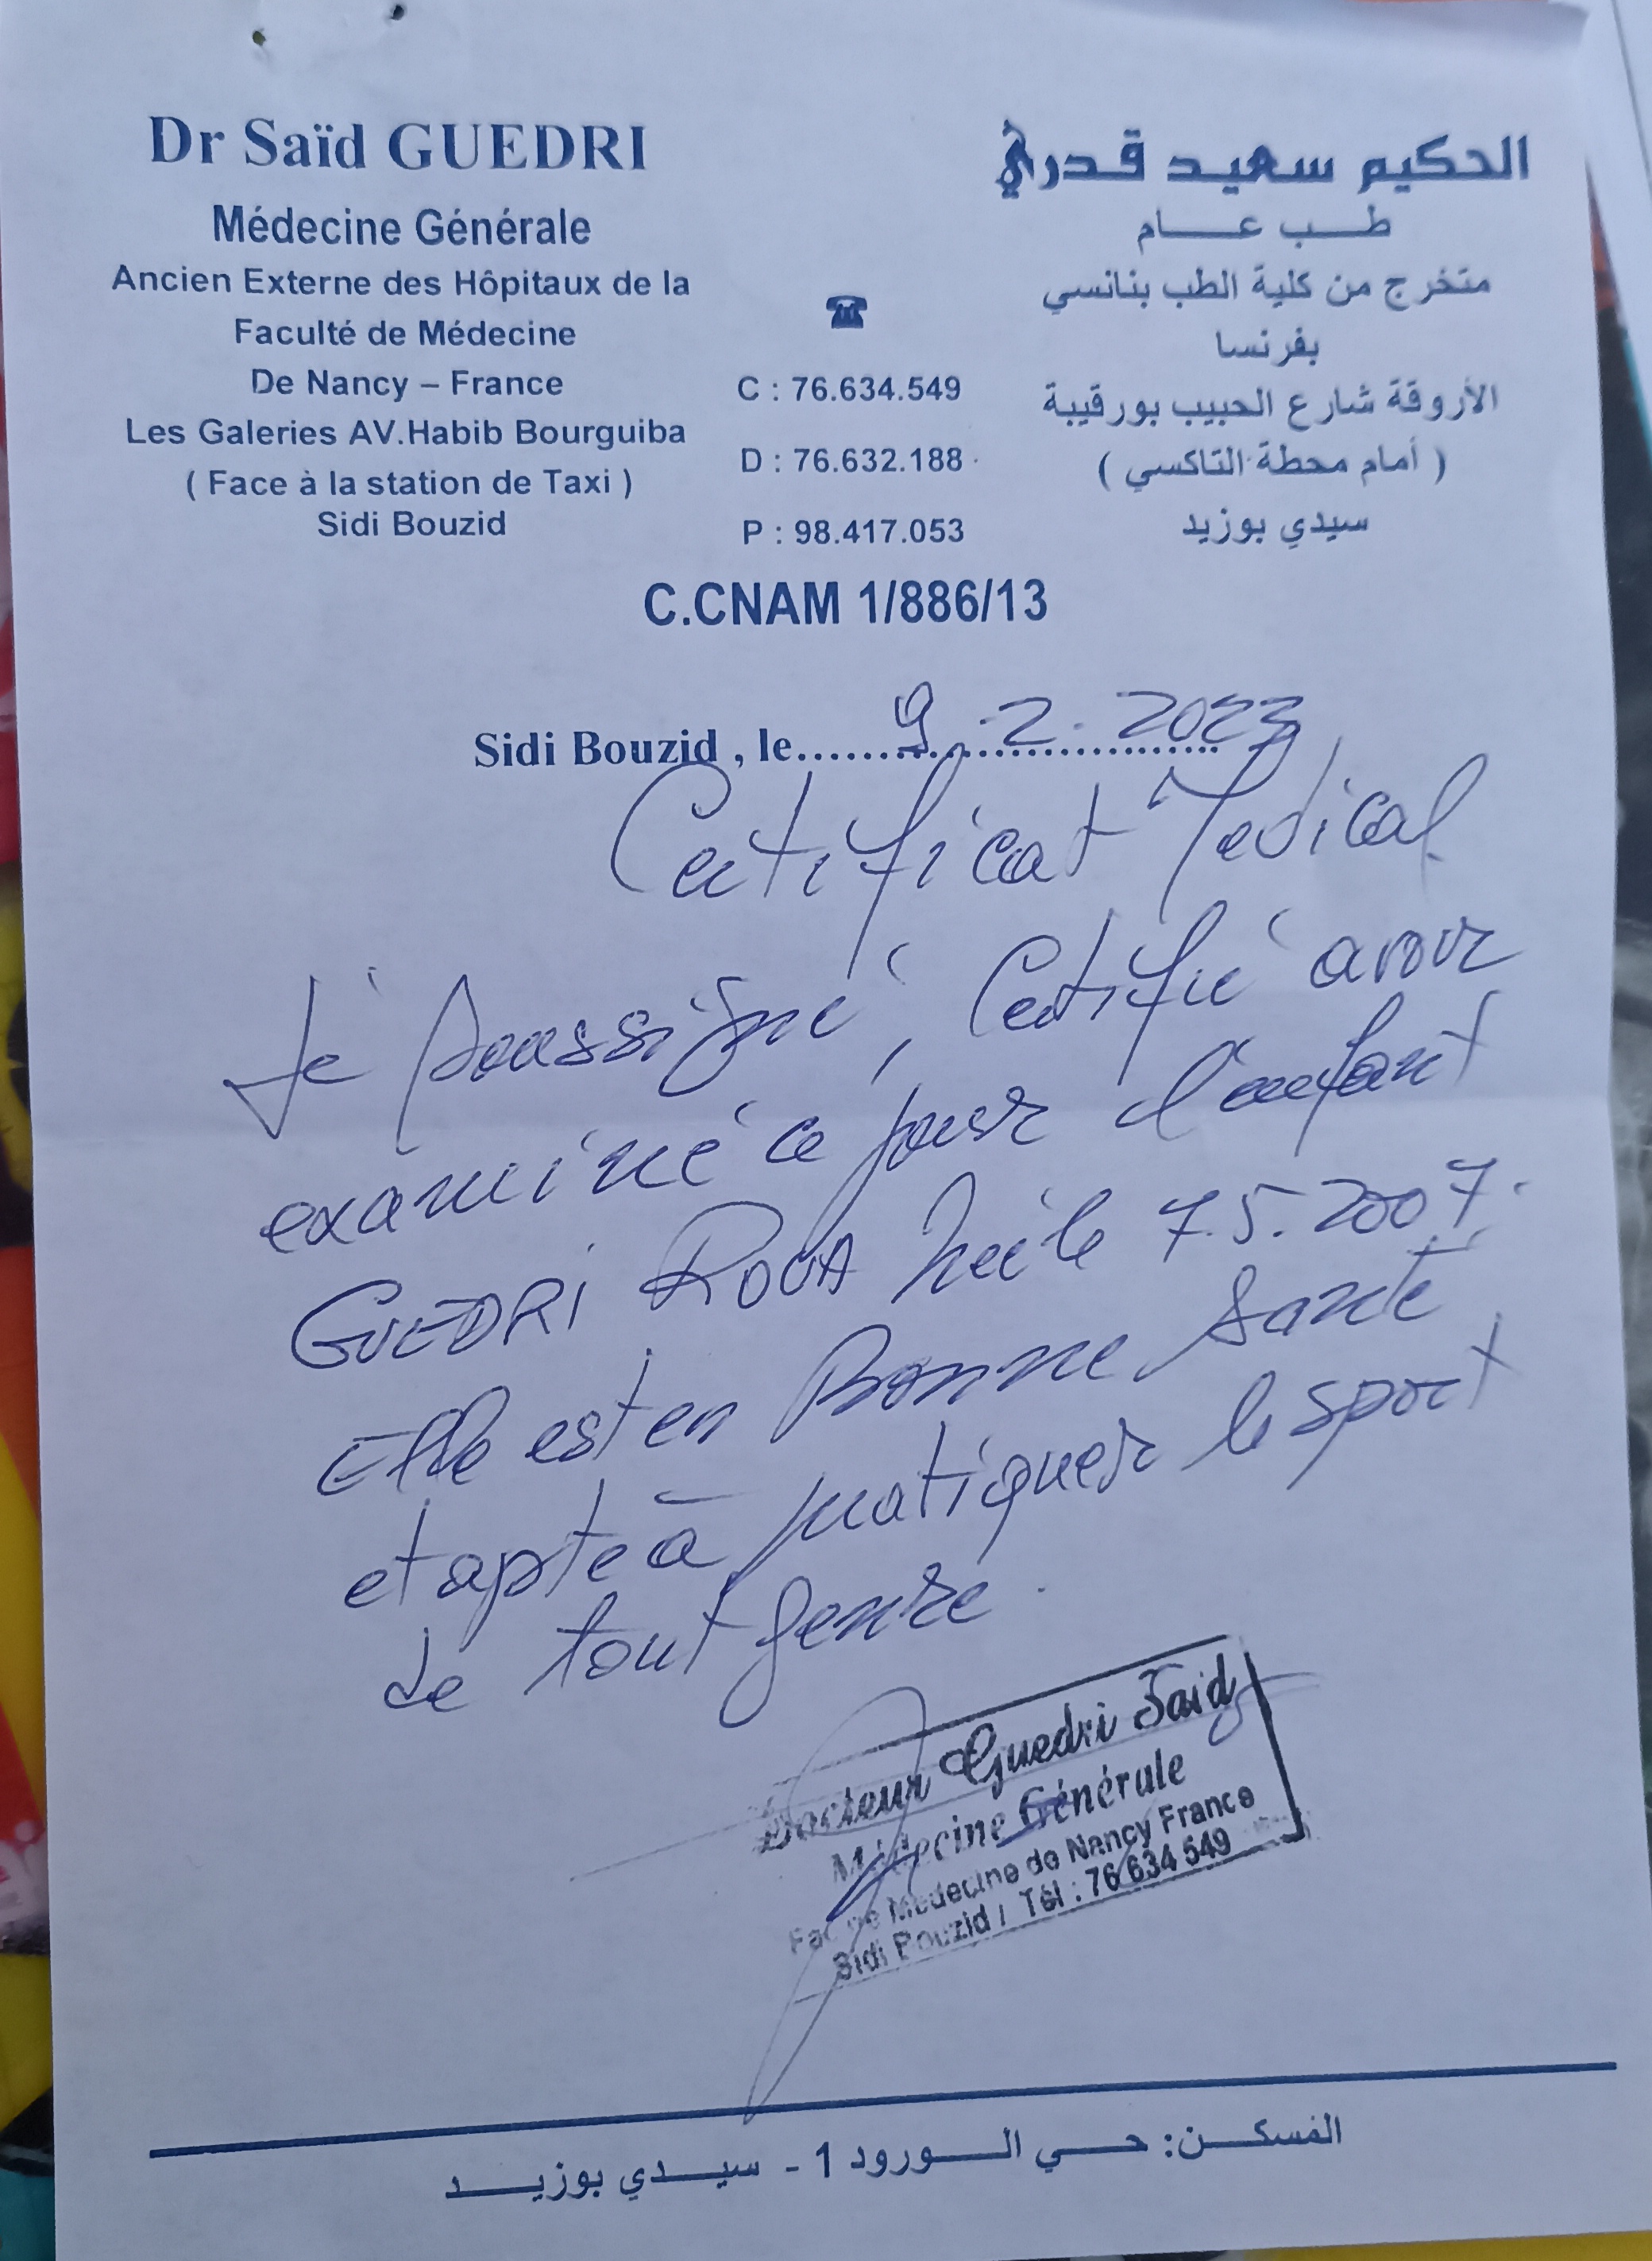 Dr Saïd GUEDRI
Médecine Générale
Ancien Externe des Hôpitaux de la
Faculté de Médecine
De Nancy – France
Les Galeries AV.Habib Bourguiba
( Face à la station de Taxi )
Sidi Bouzid
☎
C : 76.634.549
D : 76.632.188
P : 98.417.053
الحكيم سعيد قدري
طب عام
متخرج من كلية الطب بنانسي
بفرنسا
الأروقة شارع الحبيب بورقيبة
( أمام محطة التاكسي )
سيدي بوزيد
C.CNAM 1/886/13
Sidi Bouzid , le 9.2.2023
Certificat Medical
Je soussigné, Certifié avoir
examiné ce jour l'enfant
GUEDRI née le 7.5.2007.
Elle est en Bonne Santé
et apte à pratiquer le sport
de tout genre.
Docteur Guedri Said
Médecine Générale
Fac de Médecine de Nancy France
Sidi Bouzid / Tél : 76 634 549
المسكن: حي الورود 1 - سيدي بوزيد